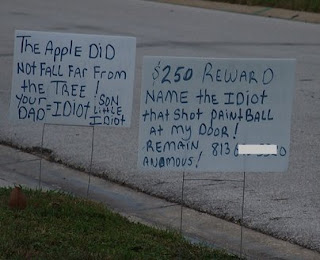 The Apple DiD
NOT FALL FAR FROM
the TREE!
YOUR = IDiOT SON
DAD LITTLE
IDIOT
$250 REWARD
NAME the IDiOT
that SHOT PAINTBALL
AT MY DOOR!
REMAIN 813 6
ANOMOUS!